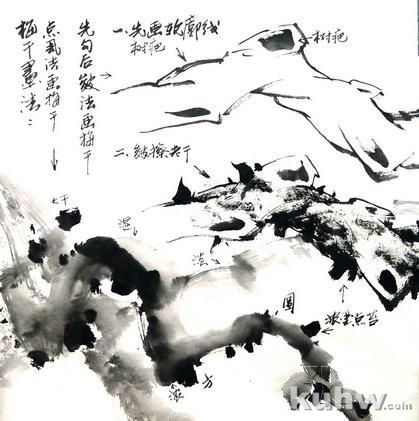 梅干畫法：
点法画梅干
先勾后皴法画梅干
一.先画轮廓线
树疤
树疤
二.皴擦老干
干
湿
淡
圆
浓墨点苔
浓 方
kuhw